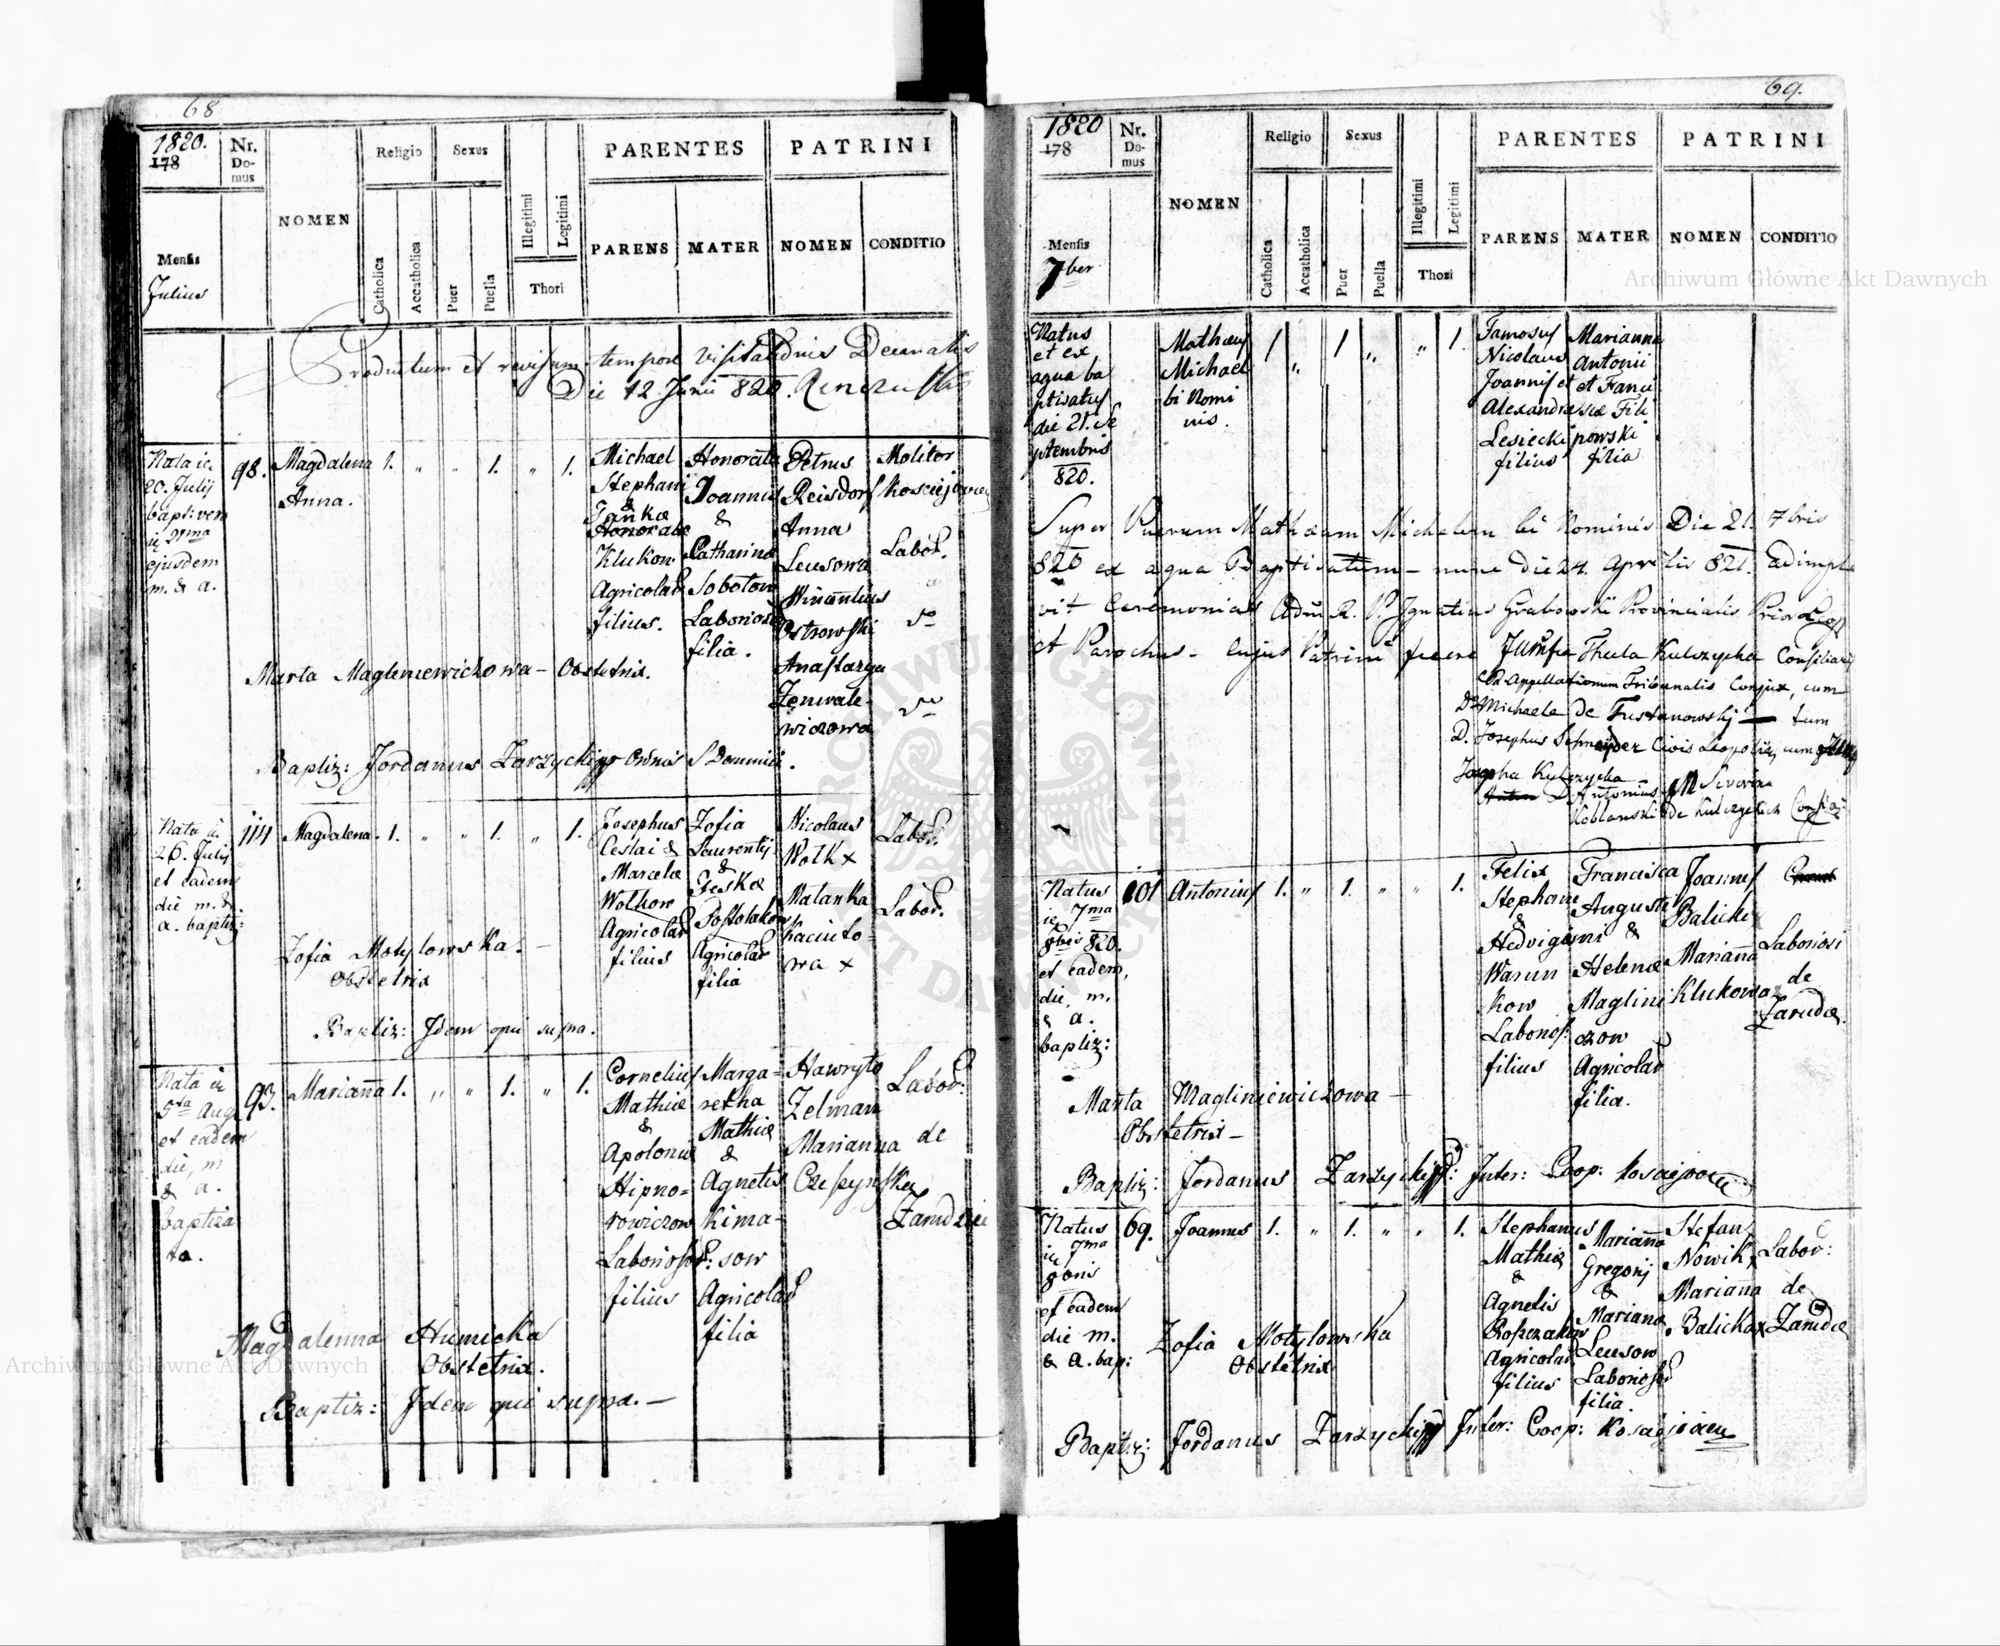 68
1820.
178
Nr. Domus
NOMEN
Religio
Sexus
PARENTES
PATRINI
Mensis
Julius
Catholica
Accatholica
Puer
Puella
Illegitimi
Legitimi
Thori
PARENS
MATER
NOMEN
CONDITIO
Productum et revisum tempore visitationis Decanalis
Die 12 Junii 820.
Nata ie
20. Julij
bapt: vero
ie 21ma
ejusdem
m. & a.
98.
Magdalena
Anna.
1. " " 1. " 1.
Michael
Stephani
&
Klukow
Agricolar
filius.
Honorata
Joannis
&
Catharina
Sobotow
Laborios
filia.
Petrus
Reisdorf
Anna
Leusowa
Wincentius
Ostrowski
Anastazya
Zenwale-
wiczowa
Molitor
Labor.
Marta Magleniewiczowa - Obstetrix.
Baptiz: Jordanus Zarzycki Ordinis S Dominici.
Nata ie
26. Julij
et eadem
die m. &
a. baptiz:
114
Magdalena.
1. " " 1. " 1.
Josephus
&
Marcela
Wolkow
Agricolar
filius
Zofia
Laurentij
&
Agricolar
filia
Nicolaus
Wolk x
Malanka
Kacinto-
wa x
Labor.
Labor.
Zofia Motylowska. -
Obstetrix
Baptiz: Idem qui supra.
Nata ie
5ta Aug
et eadem
die, m
& a.
baptiza
ta.
93.
Marianna
1. " " 1. " 1.
Cornelius
Mathiæ
&
Apolonia
Hipno-
rowiczow
Laborios:
filius
Marga-
retha
Mathiæ
&
Agnetis
Kima-
sow
Agricolar
filia
Hawryto
Zelman
Marianna
Labor:
de
Magdalenna Humicka
Obstetrix.
Baptiz: Idem qui supra. -
69.
1820
178
Nr. Domus
NOMEN
Religio
Sexus
PARENTES
PATRINI
Mensis
7ber
Catholica
Accatholica
Puer
Puella
Illegitimi
Legitimi
Thori
PARENS
MATER
NOMEN
CONDITIO
Natus
et ex
aqua ba
ptisatus
die 21. Se
ptembris
820.
Mathæus
Michael
bi Nomi
nis.
1 " 1 " " 1.
Famosus
Nicolaus
Joannis et
Alexandra
Lesiecki
filius
Marianna
Antonii
et Franci
scæ Fili
powski
filia
Super Puerum Mathæum Michalem bi Nominis Die 21. 7bris
820 ex aqua Baptisatum - nunc die 24. Aprilis 821. Adimple
vit Ceremonias Adm R. P. Ignatius Grabowski Provincialis Prior
et Parochus - Cujus Patrini fuere Thecla Kulczycka Consiliarij
Appellationum Tribunalis Conjux, cum
D. Michaele de Tustanowski - tum
D. Josephus Schneyder Civis Leopolis, cum
Josepha Kulczycka
D Antonius
Koblanski de Kulczyckich
Natus
ie 7ma
8bris 820.
et eadem,
die, m.
& a.
baptiz:
101
Antonius
1. " 1. " " 1.
Felix
Stephani
&
Hedvigis
Warun
kow
Laborios:
filius
Francisca
Augusti
ni &
Helenæ
Maglini
czow
Agricolar
filia.
Joannes
Balicki
Marianna
Klukowa
Laboriosi
de
Zarudæ
Marta Magliniewiczowa -
Obstetrix -
Baptiz: Jordanus Zarzycki Inter: Coop:
Natus
ie 7ma
et eadem
die m.
& a. bap:
69.
Joannes
1. " 1. " " 1.
Stephanus
Mathiæ
&
Agnetis
Agricolar
filius
Marianna
Gregorij
&
Mariana
Leusow
Laborios
filia.
Stefan
Nowik x
Marianna
Balicka x
Labor:
de
Zarudæ
Zofia Motylowska
Obstetrix
Baptiz: Jordanus Zarzycki Inter: Coop:
Archiwum Główne Akt Dawnych
Archiwum Główne Akt Dawnych
ARCHIWUM GŁÓWNE AKT DAWNYCH